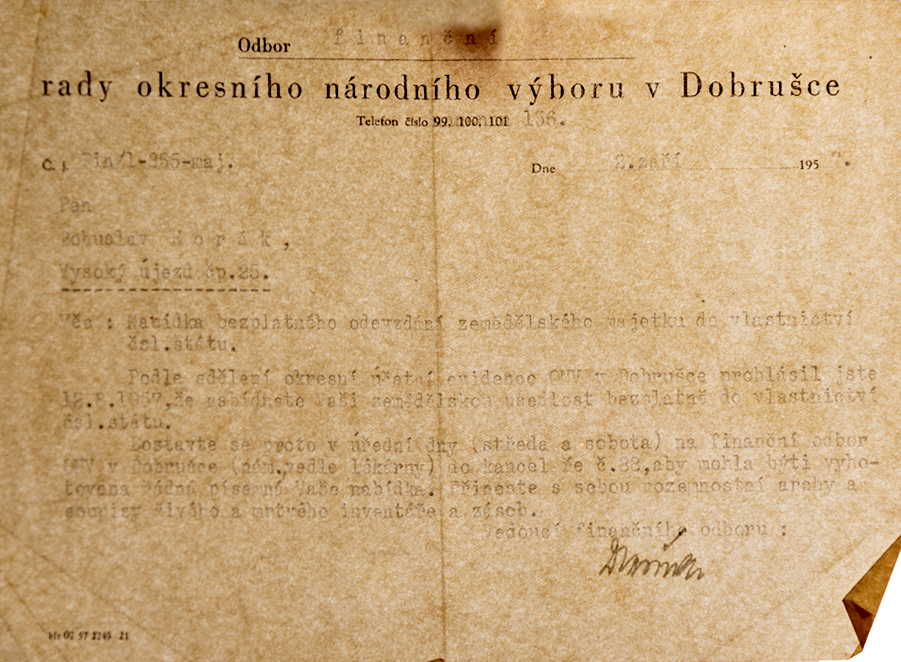 Odbor finanční
rady okresního národního výboru v Dobrušce
Telefon číslo 99, 100, 101 156.
Č. j. Fin/1-355-maj. Dne 2.září 195 7.
Pan
Bohuslav Horák,
Vysoký Újezd čp.25.
Věc : Nabídka bezplatného odevzdání zemědělského majetku do vlastnictví
čsl.státu.
Podle sdělení okresní účetní evidence ONV v Dobrušce prohlásil jste
1957,že nabídnete Vaši zemědělskou usedlost bezplatně do vlastnictví
čsl.státu.
Dostavte se proto v úřední dny (středa a sobota) na finanční odbor
ONV v Dobrušce (nám.vedle lékárny) do kancel ře č.38,aby mohla býti vyho-
tovena řádná písemná Vaše nabídka. Přineste s sebou pozemnostní archy a
soupisy živého a mrtvého inventáře a zásob.
Vedoucí finančního odboru :